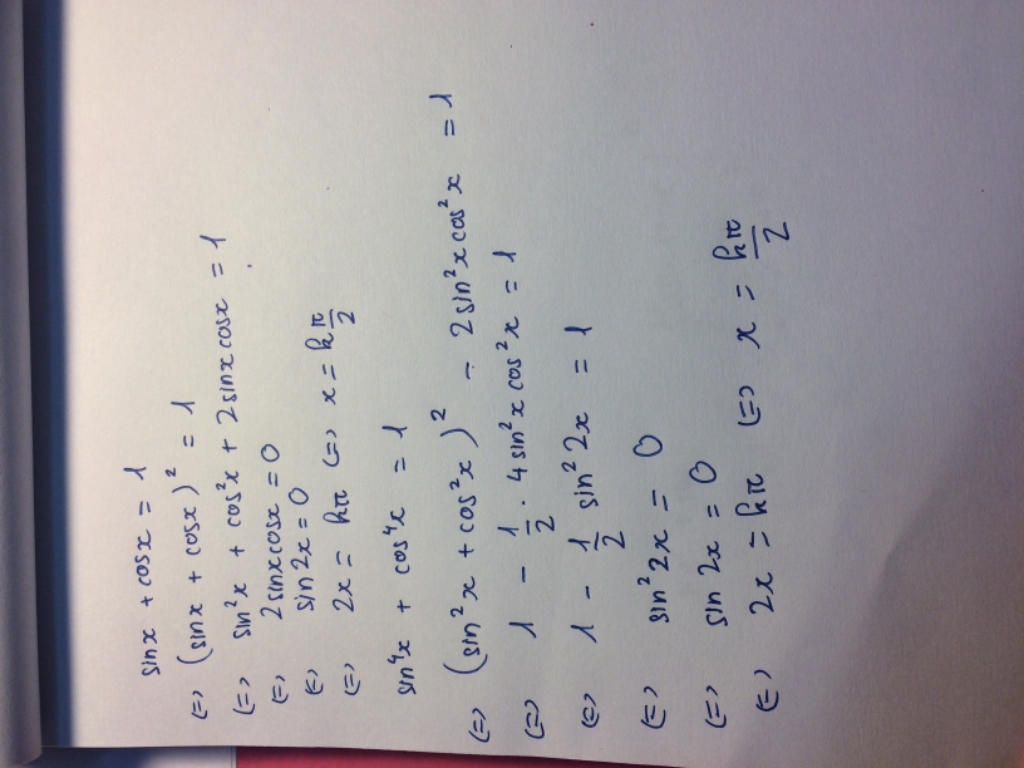 sinx + cosx = 1
(=) (sinx + cosx)² = 1
(=) sin²x + cos²x + 2sinxcosx = 1
(=) 2sinxcosx = 0
(=) sin2x = 0
(=) 2x = kπ (=) x = k π/2
sin⁴x + cos⁴x = 1
(=) (sin²x + cos²x)² - 2sin²xcos²x = 1
(=) 1 - 1/2 . 4sin²xcos²x = 1
(=) 1 - 1/2 sin²2x = 1
(=) sin²2x = 0
(=) sin2x = 0
(=) 2x = kπ (=) x = kπ/2